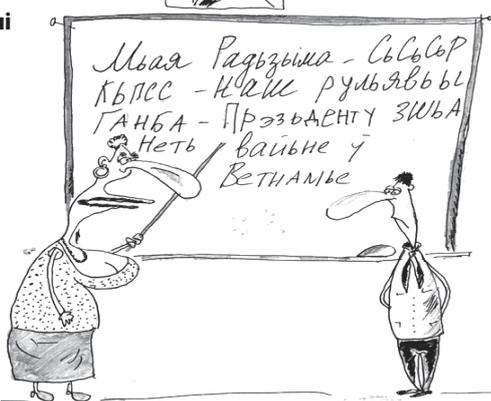 Мьая Радьзьіма - СьСьСьР
КЬПСС - НАШ рульявьы
ГАНБА - Прэзьденту ЗШЬА
Неть вайьне ў
Ветнамье